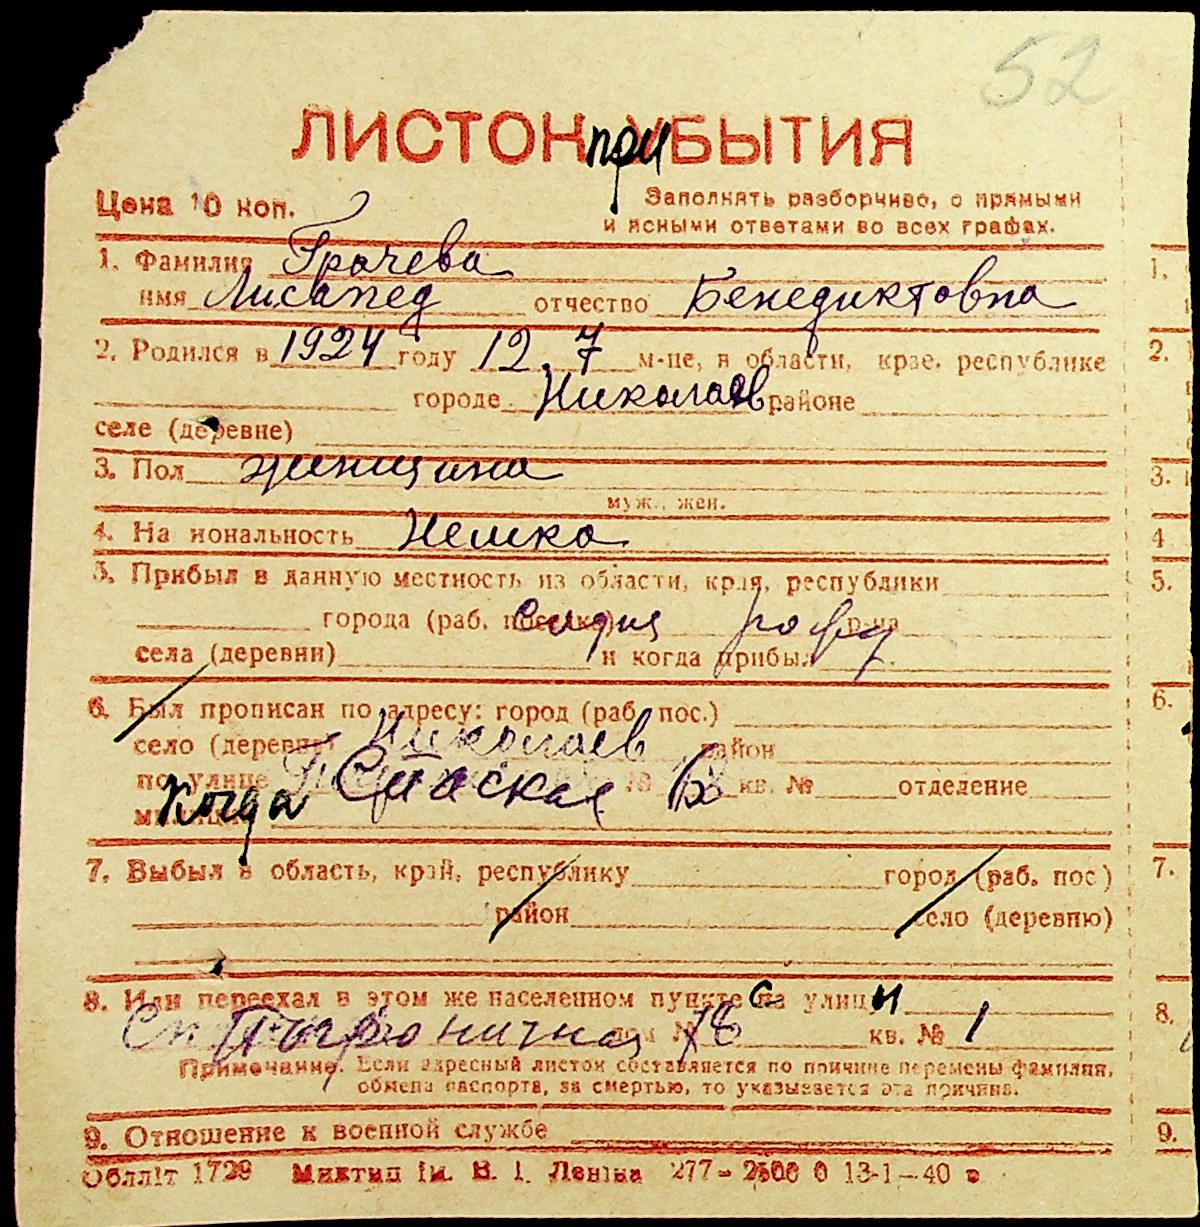 52
ЛИСТОК приБЫТИЯ
Цена 10 коп.
Заполнять разборчиво, с прямыми
и ясными ответами во всех графах.
1. Фамилия Грачева
имя Лисапед отчество Бенедиктовна
2. Родился в 1924 году 12. 7 м-це, в области, крае, республике
городе Николаев районе
селе (деревне)
3. Пол женщина
муж., жен.
4. На иональность Немка
5. Прибыл в данную местность из области, края, республики
города (раб. поселка) р-на
села (деревни) и когда прибыл
6. Был прописан по адресу: город (раб. пос.)
село (деревня) Николаев район
по улице Спаская № кв. № отделение
когда
милиции
7. Выбыл в область, край, республику город (раб. пос.)
район село (деревню)
8. Или переехал в этом же населенном пункте с улицы
Пограничная дом № 78 кв. № 1
Примечание. Если адресный листок составляется по причине перемены фамилии,
обмена паспорта, за смертью, то указывается эта причина.
9. Отношение к военной службе
Обллiт 1729 Миктип iм. В. I. Ленiна 277—2500 0 13-1—40 г
1.
2.
3.
4
5.
6.
7.
8.
9.